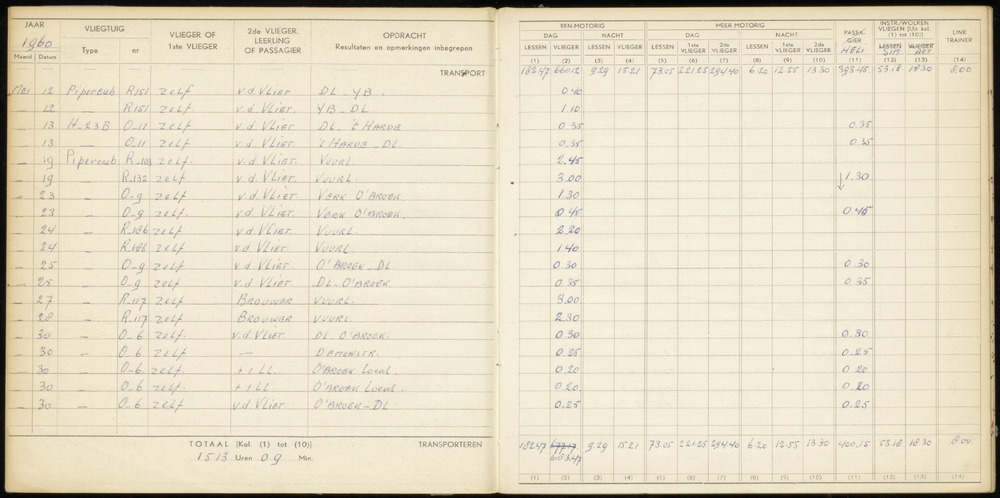 JAAR 1960
Maand Datum
VLIEGTUIG
Type nr
VLIEGER OF 1ste VLIEGER
2de VLIEGER, LEERLING OF PASSAGIER
OPDRACHT
Resultaten en opmerkingen inbegrepen
EEN-MOTORIG
DAG NACHT
LESSEN VLIEGER LESSEN VLIEGER
MEER MOTORIG
DAG NACHT
LESSEN 1ste VLIEGER 2de VLIEGER LESSEN 1ste VLIEGER 2de VLIEGER
PASSA-GIER HELI
INSTR./WOLKEN VLIEGEN [Un kol. (1) tot (10)]
LESSEN SIM VLIEGER ACT
LINK TRAINER
(1) (2) (3) (4) (5) (6) (7) (8) (9) (10) (11) (12) (13) (14)
TRANSPORT 182.47 660.12 9.29 15.21 73.05 221.25 294.40 6.20 12.55 13.30 393.45 53.18 18.30 8.00
MEI 12 Pipercub R151 zelf v.d. Vlier DL - YB. 0.40
– 12 – R151 zelf v.d. Vlier. YB - DL 1.10
– 13 H-23B O-11 zelf v.d. Vlier DL - 't HARDE 0.35 0.35
– 13 – O-11 zelf v.d. Vlier. 't HARDE - DL 0.35 0.35
– 19 Pipercub R-103 zelf. v.d. Vlier Vuurl. 2.45
– 19 – R-132 zelf v.d. Vlier. Vuurl. 3.00 1.30
– 23 – O-9 zelf v.d. Vlier. Verk O'Broek 1.30
– 23 – O-9 zelf v.d. Vlier. Verk O'Broek. 0.45 0.45
– 24 – R-186 zelf v.d. Vlier. Vuurl. 2.20
– 24 – R-186 zelf v.d. Vlier. Vuurl. 1.40
– 25 – O-9 zelf v.d. Vlier. O'Broek - DL 0.30 0.30
– 25 – O-9 zelf v.d. Vlier. DL - O'Broek 0.35 0.35
– 27 – R-117 zelf Brouwer Vuurl. 3.00
– 28 – R-117 zelf Brouwer Vuurl. 2.30
– 30 – O-6 zelf. v.d. Vlier. DL. O'Broek. 0.30 0.30
– 30 – O-6 zelf — Demonstr. 0.25 0.25
– 30 – O-6 zelf. + 1 LL O'Broek Local. 0.20 0.20
– 30 – O-6 zelf. + 1 LL O'Broek Local. 0.20 0.20
– 30 – O-6 zelf v.d. Vlier. O'Broek - DL 0.25 0.25
TOTAAL [Kol. (1) tot (10)] TRANSPORTEREN 182.47 9.29 15.21 73.05 221.25 294.40 6.20 12.55 13.30 400.15 53.18 18.30 8.00
1513 Uren 09 Min. 683.47
(1) (2) (3) (4) (5) (6) (7) (8) (9) (10) (11) (12) (13) (14)